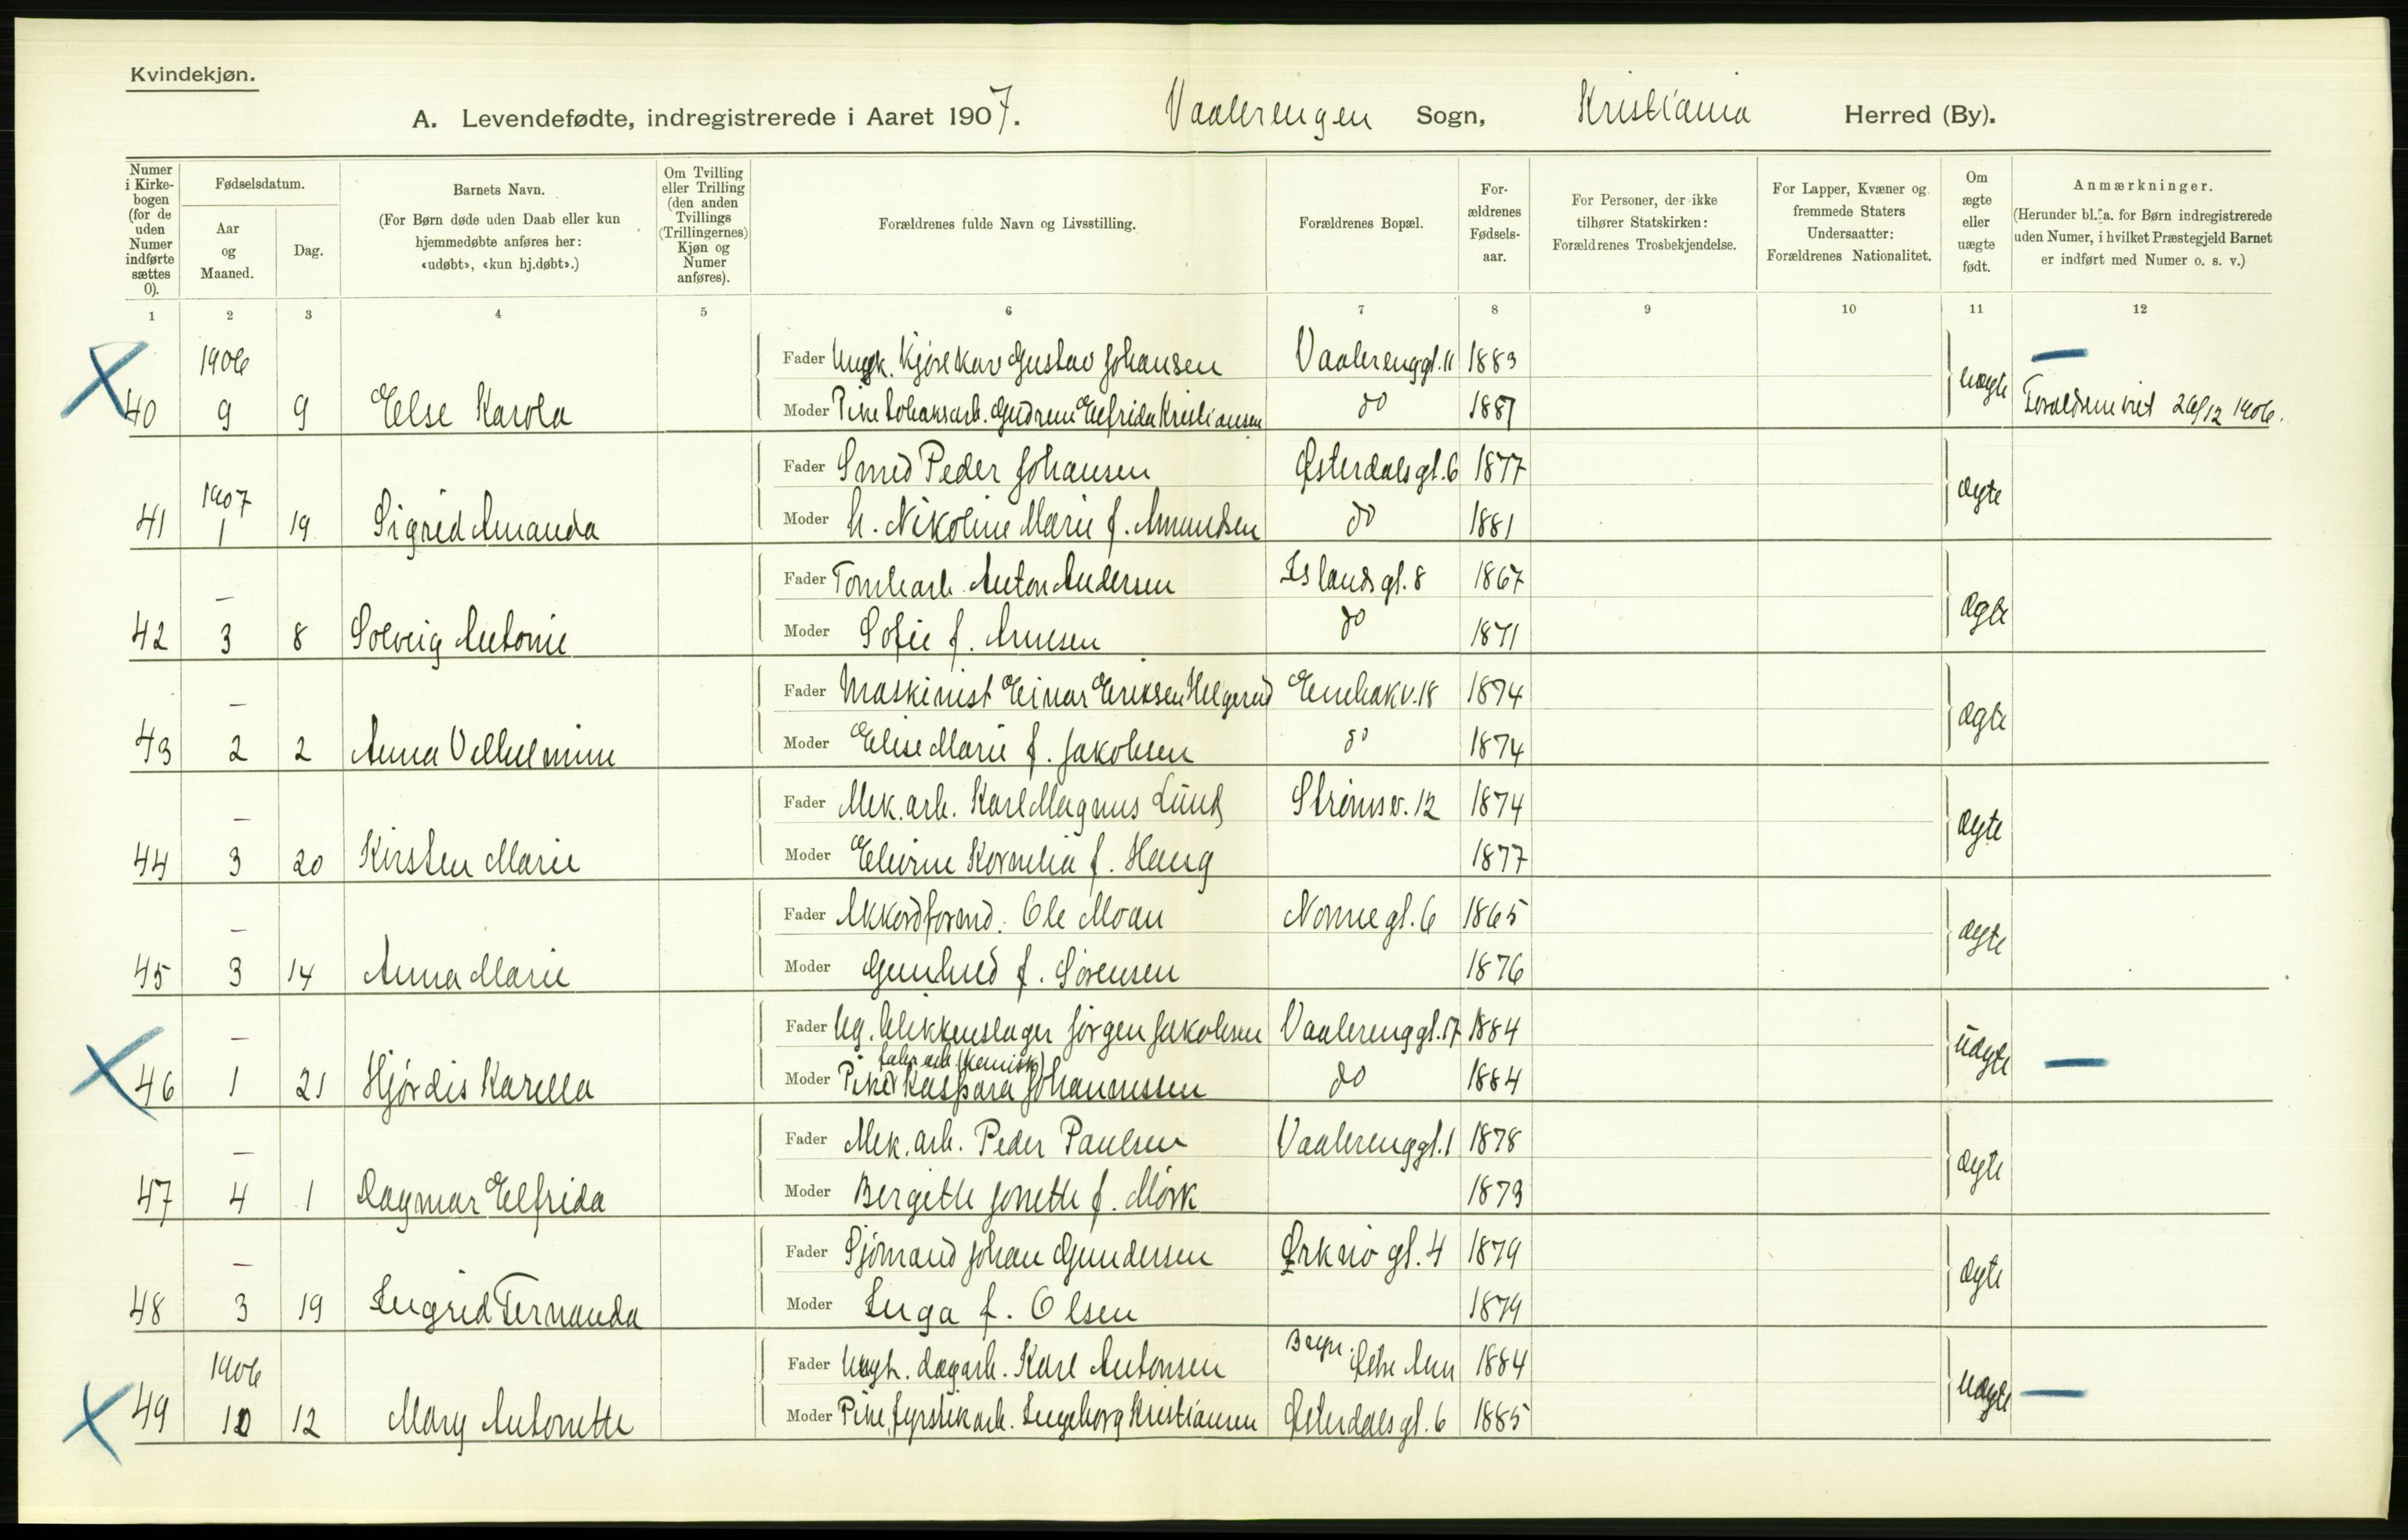 Kvindekjøn.
A. Levendefødte, indregistrerede i Aaret 1907. Vaalerengen Sogn, Kristiania Herred (By).
Numer i Kirkebogen (for de uden Numer indførte sættes 0).
Fødselsdatum.
Aar og Maaned.
Dag.
Barnets Navn.
(For Børn døde uden Daab eller kun hjemmedøbte anføres her: «udøbt», «kun hj.døbt».)
Om Tvilling eller Trilling (den anden Tvillings (Trillingernes) Kjøn og Numer anføres).
Forældrenes fulde Navn og Livsstilling.
Forældrenes Bopæl.
Forældrenes Fødselsaar.
For Personer, der ikke tilhører Statskirken: Forældrenes Trosbekjendelse.
For Lapper, Kvæner og fremmede Staters Undersaatter: Forældrenes Nationalitet.
Om ægte eller uægte født.
Anmærkninger.
(Herunder bl. a. for Børn indregistrerede uden Numer, i hvilket Præstegjeld Barnet er indført med Numer o. s. v.)
1 2 3 4 5 6 7 8 9 10 11 12
1906 Fader Ungk. Kjørekar Gustav Johansen Vaalerenggt. 11 1883 uægte —
40 9 9 Else Karola Moder Pike Tobaksarb. Gudrun Elfrida Kristiansen do 1887 Foræld. viet 26/12 1906.
Fader Smed Peder Johansen Østerdalsgt. 6 1877 ægte
1907
41 1 19 Sigrid Amanda Moder h. Nikoline Marie f. Amundsen do 1881
— Fader Tomtearb. Anton Andersen Islandsgt. 8 1867 ægte
42 3 8 Solveig Antonie Moder Sofie f. Arnesen do 1871
— Fader Maskinist Einar Eriksen Helgerud Enebakv. 18 1874 ægte
43 2 2 Anna Vilhelmine Moder Elise Marie f. Jakobsen do 1874
— Fader Mek. arb. Karl Magnus Lund Strømsv. 12 1874 ægte
44 3 20 Kirsten Marie Moder Elvine Kornelia f. Haug 1877
— Fader Akkordformd. Ole Moan Normegt. 6 1865 ægte
45 3 14 Anna Marie Moder Gunhild f. Sørensen 1876
— Fader Ug. blikkenslager Jørgen Jakobsen Vaalerenggt. 17 1884 uægte —
fabr. arb. (kemisk)
46 1 21 Hjørdis Karella Moder Pike Kaspara Johannessen do 1884
— Fader Mek. arb. Peder Paulsen Vaalerenggt. 1 1878 ægte
47 4 1 Dagmar Elfrida Moder Bergitte Jonette f. Mörk 1873
— Fader Sjømand Johan Gundersen Ørknøgt. 4 1879 ægte
48 3 19 Ingrid Fernanda Moder Inga f. Olsen 1879
1906 Fader Ungk. dagarb. Karl Antonsen Østre Aker 1884 uægte —
49 10 12 Mary Antonette Moder Pike, fyrstikarb. Ingeborg Kristiansen Østerdalsgt. 6 1885